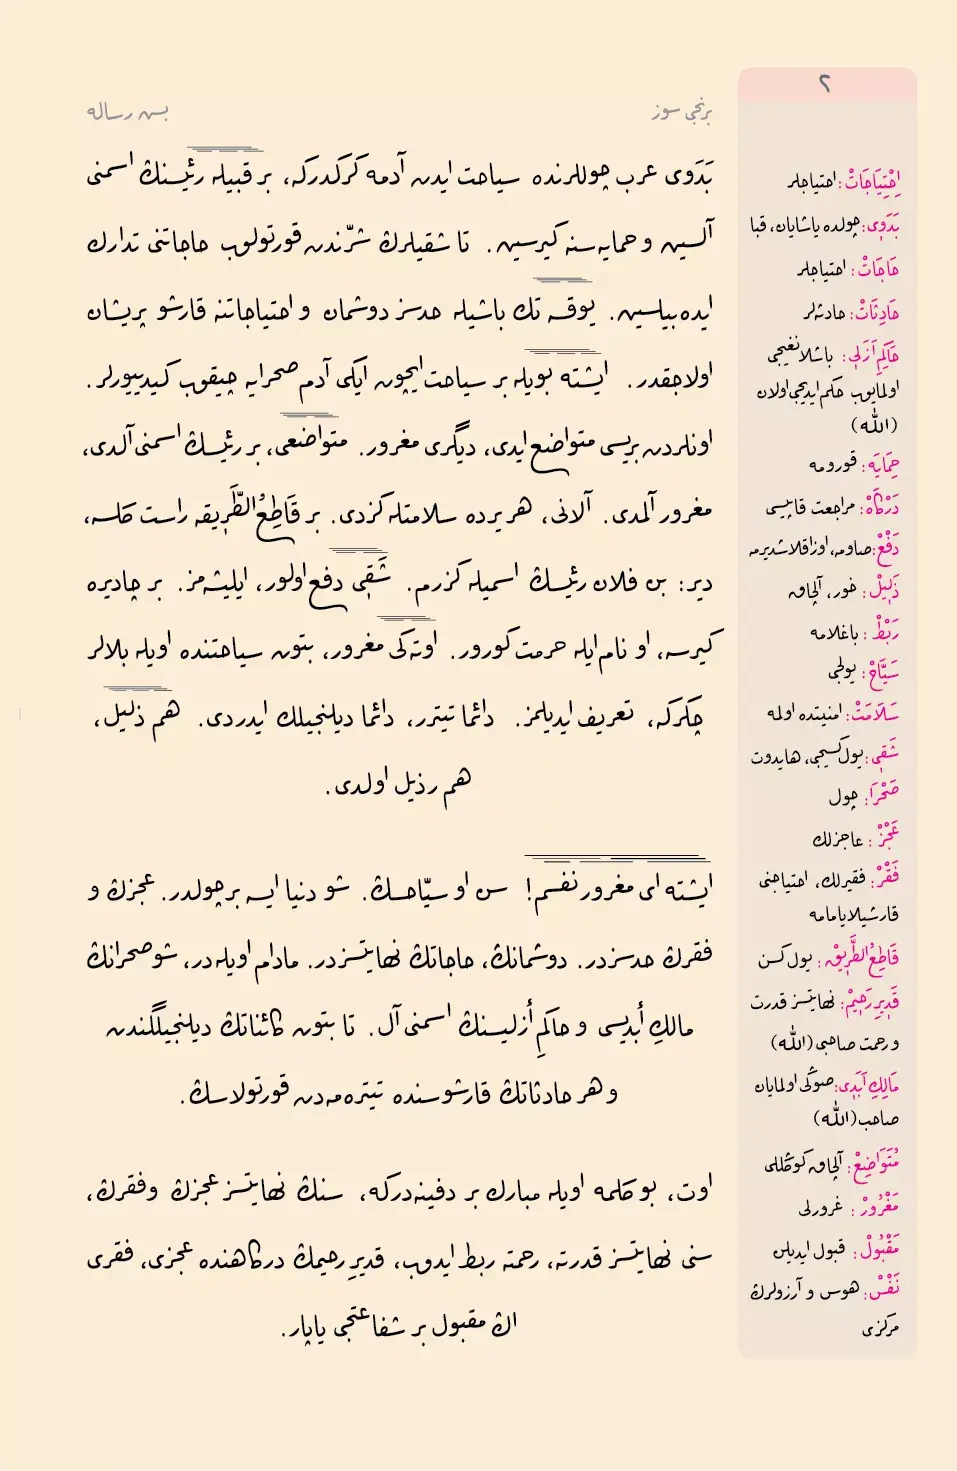 ٢
برنجى سوز
بسه رساله
بَدَوى عرب چوللرنده سياحت ايدن آدمه گركدركه، بر قبيله رئيسنڭ اسمنى
آلسين و حمايه‌سنه گيرسين. تا شقيلرڭ شرّندن قورتولوب حاجاتنى تدارك
ايده‌بيلسين. يوقسه تك باشيله حدسز دوشمان و احتياجاتنه قارشو پريشان
اولاجقدر. ايشته بويله بر سياحت ايچون ايكى آدم صحرايه چيقوب گيدييورلر.
اونلردن بريسى متواضع ايدى، ديگرى مغرور. متواضعى، بر رئيسڭ اسمنى آلدى،
مغرور آلمدى. آلانى، هر يرده سلامتله گزدى. بر قَاطِعُ الطَّرِيقه راست گلسه،
دير: بن فلان رئيسڭ اسميله گزرم. شَقِى دفع اولور، ايليشه‌مز. بر چاديره
گيرسه، او نام ايله حرمت گورور. اوته‌كى مغرور، بتون سياحتنده اويله بلالر
چكركه، تعريف ايديلمز. دائما تيترر، دائما ديلنجيلك ايدردى. هم ذليل،
هم رذيل اولدى.
ايشته اى مغرور نفسم! سن او سيّاحسڭ. شو دنيا ايسه بر چولدر. عجزڭ و
فقرڭ حدسزدر. دوشمانڭ، حاجاتڭ نهايتسزدر. مادام اويله‌در، شو صحرانڭ
مالكِ أبديسى و حاكمِ أزليسنڭ اسمنى آل. تا بتون كائناتڭ ديلنجيلگندن
و هر حادثاتڭ قارشوسنده تيتره‌مه‌دن قورتولاسڭ.
اوت، بو كلمه اويله مبارك بر دفينه‌دركه، سنڭ نهايتسز عجزڭ و فقرڭ،
سنى نهايتسز قدرته، رحمته ربط ايدوب، قديرِ رحيمڭ درگاهنده عجزى، فقرى
اڭ مقبول بر شفاعتجى ياپار.
اِحْتِيَاجَاتْ: احتياجلر
بَدَوِى: چولده ياشايان، قبا
حَاجَاتْ: احتياجلر
حَادِثَاتْ: حادثه‌لر
حَاكِمِ اَزَلِى: باشلانغيجى
اولمايوب حكم ايديجى اولان
(الله)
حِمَايَه: قورومه
دَرْگَاهْ: مراجعت قاپيسى
دَفْعْ: صاومه، اوزاقلاشديرمه
ذَلِيلْ: خور، آلچاق
رَبْطْ: باغلامه
سَيَّاحْ: يولجى
سَلَامَتْ: امنيتده اولمه
شَقِى: يول كسيجى، هايدوت
صَحْرَا: چول
عَجْزْ: عاجزلك
فَقْرْ: فقيرلك، احتياجنى
قارشيلايامامه
قَاطِعُ الطَّرِيقْ: يول كسن
قَدِيرِ رَحِيمْ: نهايتسز قدرت
و رحمت صاحبى (الله)
مَالِكِ اَبَدِى: صوڭى اولمايان
صاحب (الله)
مُتَوَاضِعْ: آلچاق گوڭللى
مَغْرُورْ: غرورلى
مَقْبُولْ: قبول ايديلن
نَفْسْ: هوس و آرزولرڭ
مركزى